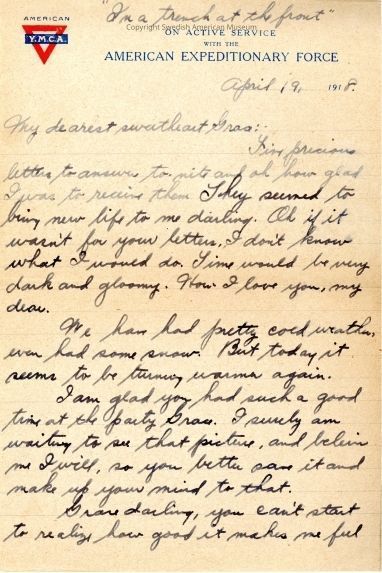 "In a trench at the front"
AMERICAN
Y.M.C.A.
Copyright Swedish American Museum
ON ACTIVE SERVICE
WITH THE
AMERICAN EXPEDITIONARY FORCE
April 19, 1918.
My dearest sweetheart Grace:
Five precious
letters to answer to nite and oh how glad
I was to receive them They seemed to
bring new life to me darling. Oh if it
wasn't for your letters, I don't know
what I would do. Time would be very
dark and gloomy. How I love you, my
dear.
We have had pretty cold weather,
even had some snow. But today it
seems to be turning warmer again.
I am glad you had such a good
time at the party Grace. I surely am
waiting to see that picture, and believe
me I will, so you better save it and
make up your mind to that.
Grace darling, you can't start
to realize how good it makes me feel